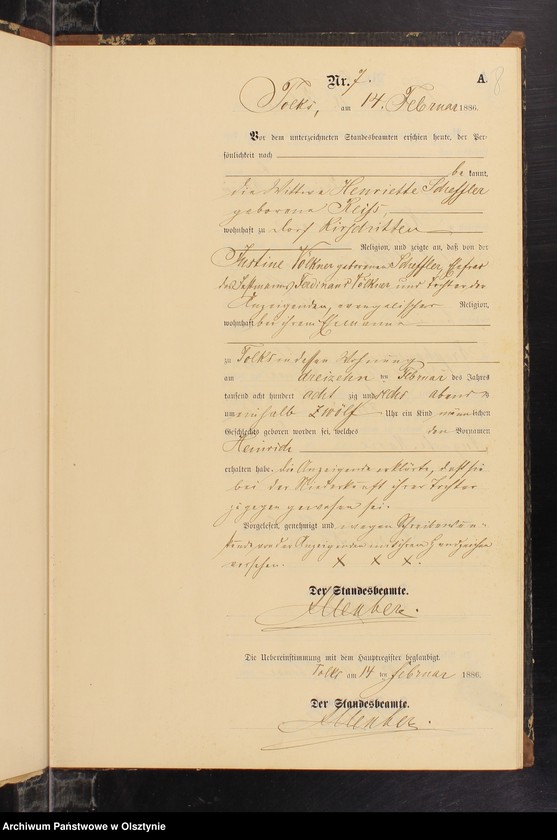 Nr. 7. A. 8
Tolks, am 14. Februar 1886.
Vor dem unterzeichneten Standesbeamten erschien heute, der Per-
sönlichkeit nach
be kannt,
die Wittwe Henriette Scheffler
geborene Reiß,
wohnhaft zu Dorf Kirschitten
Religion, und zeigte an, daß von der
Justine Völkner geborenen Scheffler, Ehefrau
des Ferdinand Völkner und Tochter der
Anzeigenden, evangelischer Religion,
wohnhaft bei ihrem Ehemanne
zu Tolks in dessen Wohnung
am dreizehn ten Februar des Jahres
tausend acht hundert acht zig und sechs Abends
um einhalb zwölf Uhr ein Kind männlichen
Geschlechts geboren worden sei, welches den Vornamen
Heinrich
erhalten habe. Die Anzeigende erklärte, daß sie
bei der Niederkunft ihrer Tochter
zugegen gewesen sei.
Vorgelesen, genehmigt und wegen Schreibens un-
kunde von der Anzeigenden mit ihrem Handzeichen
versehen. X X X.
Der Standesbeamte.
Die Uebereinstimmung mit dem Hauptregister beglaubigt.
Tolks am 14 ten Februar 1886.
Der Standesbeamte.
Archiwum Państwowe w Olsztynie